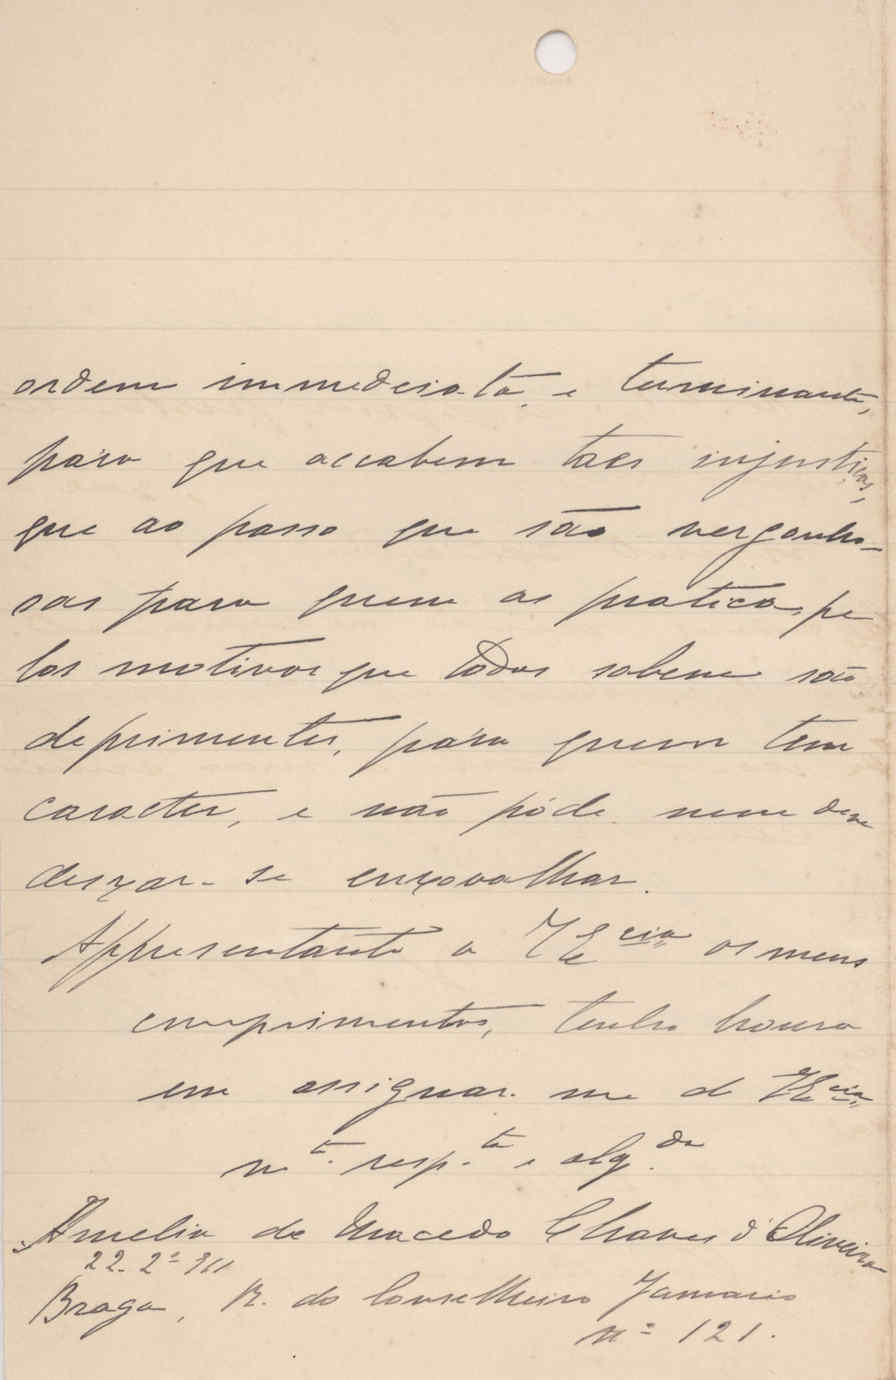 ordem immedeiata, e terminante,
para que accabem taes injustiças,
que ao passo que são vergonho-
sas para quem as pratica, pe
los motivos que todos sabem são
deprimentes, para quem tem
caracter, e não póde nem deve
deixar-se enxovalhar.
Appresentando a V E.cia os meus
cumprimentos, tenho honra
em assignar-me de V E.cia
m.to resp.ta e obg.da
Amelia de Macedo Chaves d'Oliveira
22-2º-911
Braga, R. do Conselheiro Januario
nº 121.